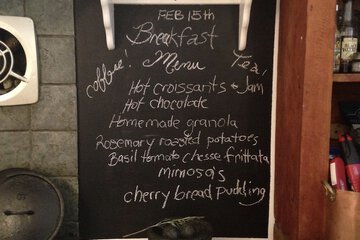 FEB 15th
Breakfast
Menu
coffee!
Tea!
Hot croissants & Jam
Hot chocolate
Homemade granola
Rosemary roasted potatoes
Basil tomato chesse frittata
mimosa's
cherry bread pudding